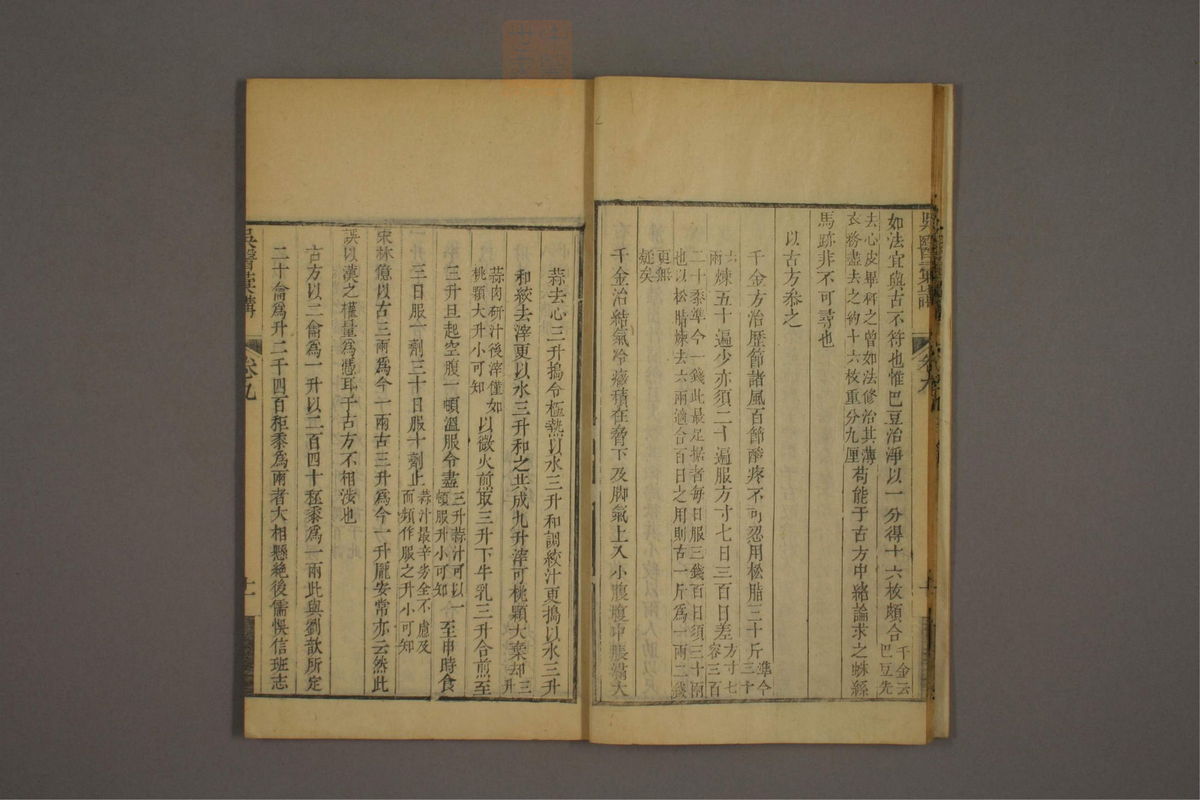 吳醫彙講
卷九
如法宜與古不符也惟巴豆治淨以一分得十六枚頗合千金云巴豆先
去心皮畢秤之曾如法修治其薄衣務盡去之約十六枚重分九厘苟能于古方中緒論求之蛛絲
馬跡非不可尋也
以古方叅之
千金方治歷節諸風百節酸疼不可忍用松脂三十斤準今三十
兩煉五十遍少亦須二十遍服方寸七日三百日差方寸七容三百
二十黍準今一錢此最足據者每日服三錢百日須三十兩也以松脂煉去六兩適合百日之用則古一斤為一兩二錢
更無疑矣
千金治結氣冷癥積在脅下及脚氣上入小腹腹中脹滿大
蒜去心三升搗令極熟以水三升和調絞汁更搗以水三升
和絞去滓更以水三升和之共成九升滓可桃顆大棄却三升
蒜肉研汁後滓僅如桃顆大升小可知以微火煎取三升下牛乳三升合煎至
三升旦起空腹一頓溫服令盡三升蒜汁可以一頓服升小可知至申時食
三日服一劑三十日服十劑止蒜汁最辛劣全不慮及而頻作服之升小可知
宋林億以古三兩為今一兩古三升為今一升龐安常亦云然此
誤以漢之權量為憑耳于古方不相涉也
古方以二龠為一升以二百四十秬黍為一兩此與劉歆所定
二十龠為升二千四百秬黍為兩者大相懸絶後儒悞信班志
吳醫彙講
卷九
十一